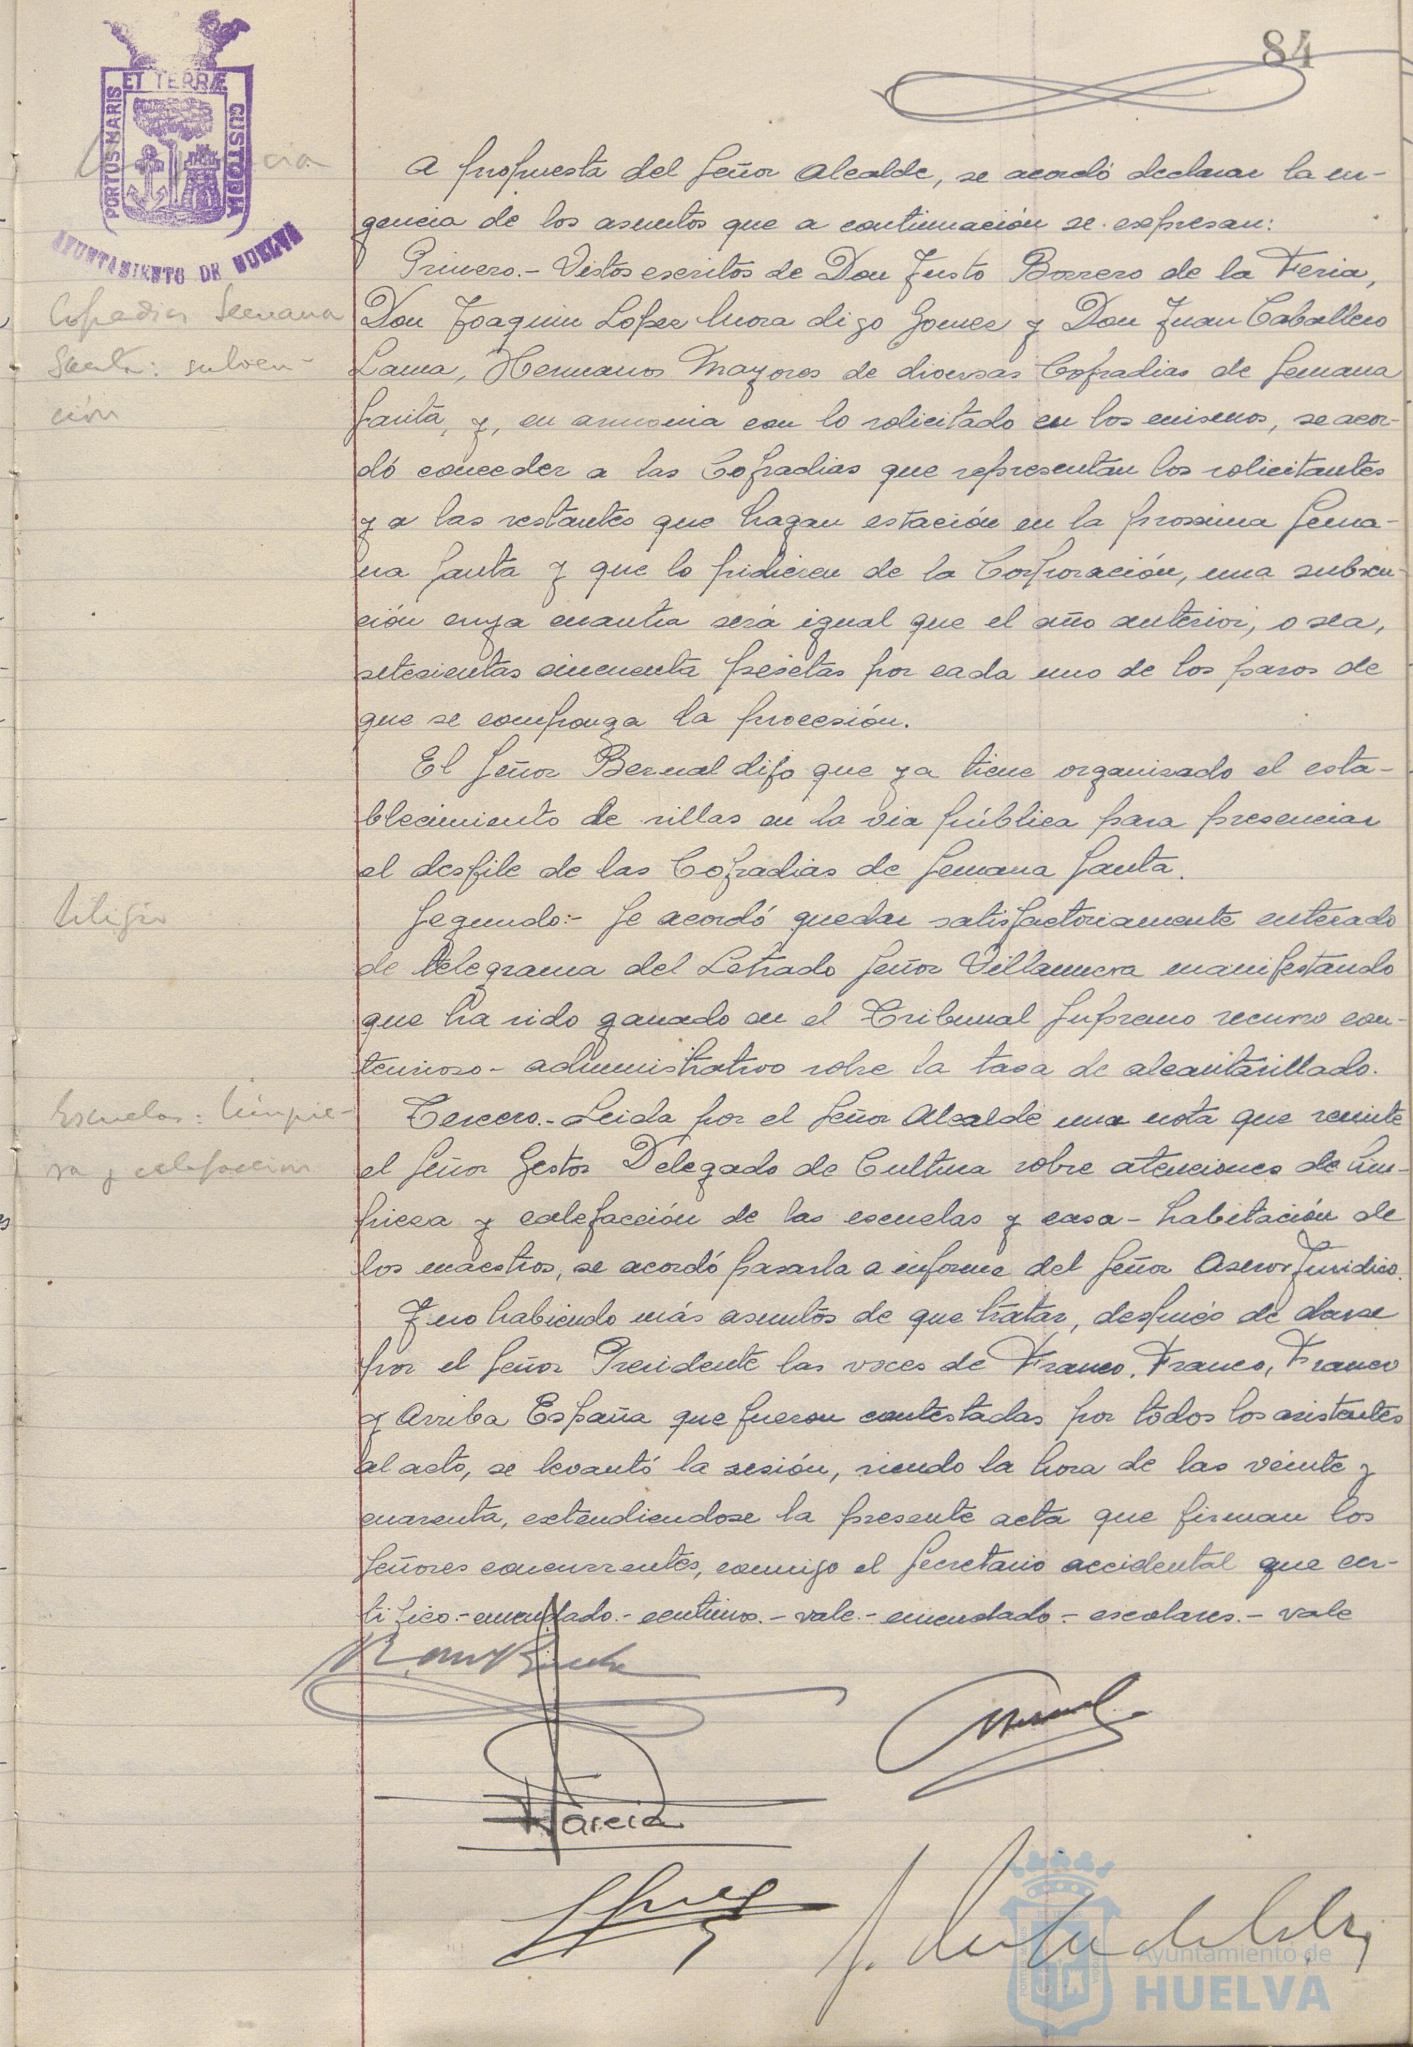 84
ET TERRÆ
PORTUS MARIS
CUSTODIA
AYUNTAMIENTO DE HUELVA
A propuesta del Señor Alcalde, se acordó declarar la ur-
gencia de los asuntos que a continuación se expresan:
Cofradias Semana
Santa: subven-
ción
Primero.- Vistos escritos de Don Justo Borrero de la Feria,
Don Joaquin Lopez Mora digo Gomez y Don Juan Caballero
Lama, Hermanos Mayores de diversas Cofradias de Semana
Santa, y, en armonia con lo solicitado en los mismos, se acor-
dó conceder a las Cofradias que representan los solicitantes
y a las restantes que hagan estación en la proxima Sema-
na Santa y que lo pidieren de la Corporación, una subven-
ción cuya cuantia será igual que el año anterior, o sea,
setecientas cincuenta pesetas por cada uno de los pasos de
que se componga la procesión.
El Señor Bernal dijo que ya tiene organizado el esta-
blecimiento de sillas en la via pública para presenciar
el desfile de las Cofradias de Semana Santa.
Litigio
Segundo:- Se acordó quedar satisfactoriamente enterado
de telegrama del Letrado Señor Villanueva manifestando
que ha sido ganado en el Tribunal Supremo recurso con-
tencioso-administrativo sobre la tasa de alcantarillado.
Escuelas: limpie-
za y calefaccion
Tercero.- Leida por el Señor Alcalde una nota que remite
el Señor Gestor Delegado de Cultura sobre atenciones de lim-
pieza y calefacción de las escuelas y casa-habitación de
los maestros, se acordó pasarla a informe del Señor Asesor Juridico.
Y no habiendo más asuntos de que tratar, después de darse
por el Señor Presidente las voces de Franco, Franco, Franco
y Arriba España que fueron contestadas por todos los asistentes
al acto, se levantó la sesión, siendo la hora de las veinte y
cuarenta, extendiendose la presente acta que firman los
Señores concurrentes, conmigo el Secretario accidental que cer-
tifico.- enmendado.- centimos.- vale.- enmendado.- escolares.- vale
Garcia
Ayuntamiento de
HUELVA